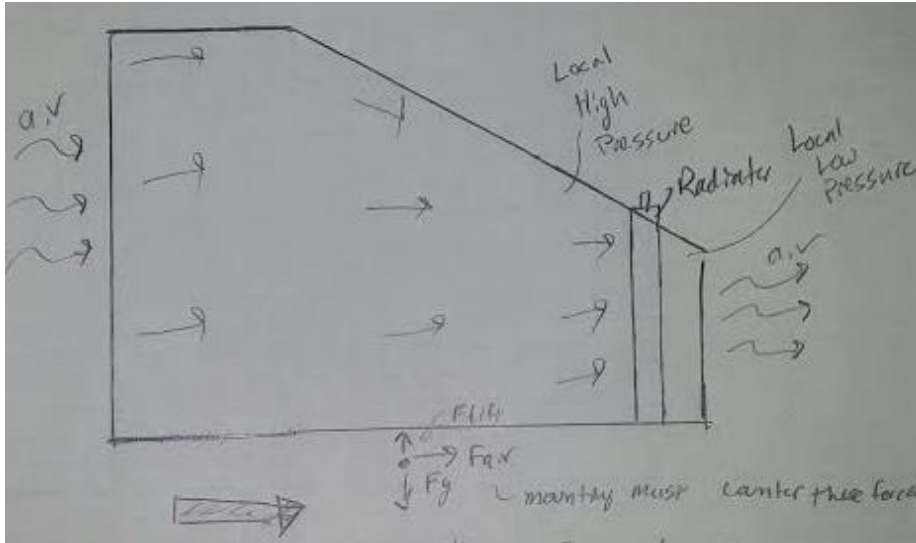 air
Local
High
Pressure
Radiator
Local
Low
Pressure
air
Flift
Fair
Fg
mounting must counter these forces